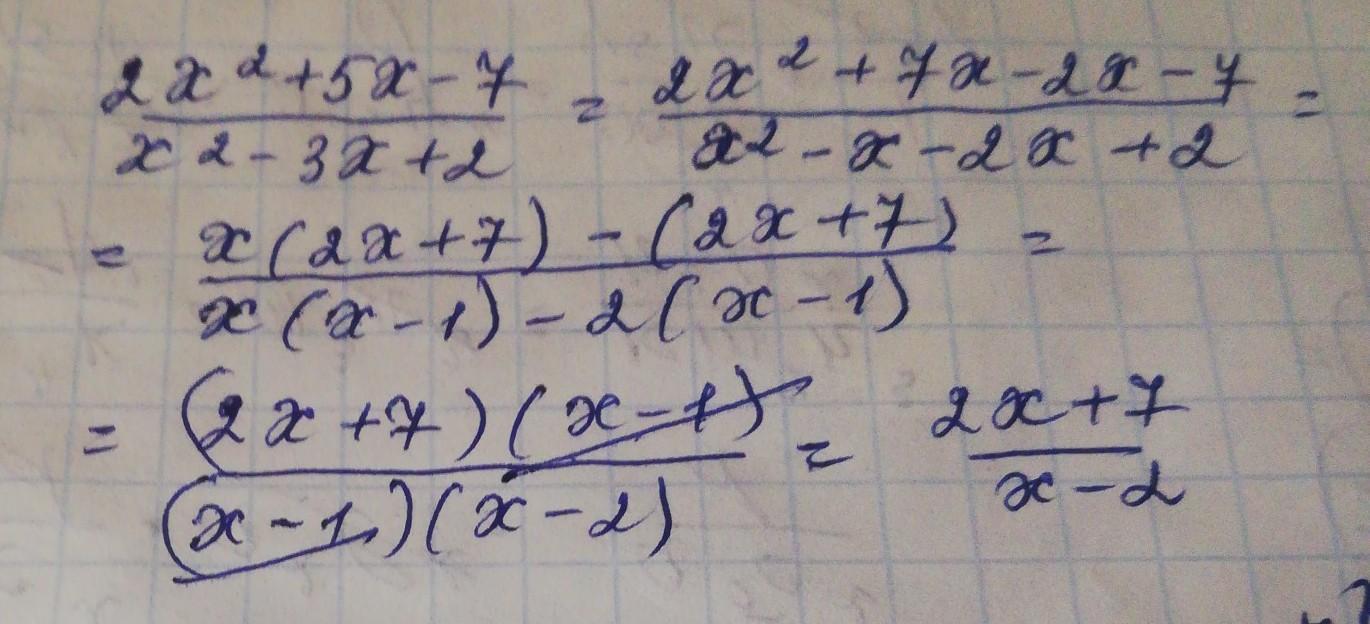 (2x²+5x-7)/(x²-3x+2) = (2x²+7x-2x-7)/(x²-x-2x+2) =
= (x(2x+7)-(2x+7))/(x(x-1)-2(x-1)) =
= ((2x+7)(x-1))/((x-1)(x-2)) = (2x+7)/(x-2)